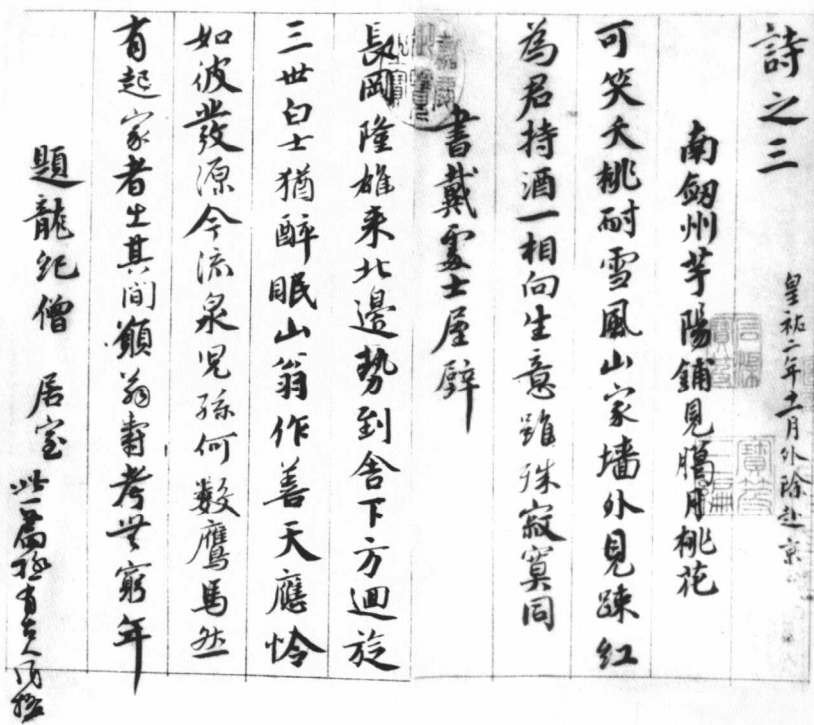 詩之三
皇祐二年十一月外除赴京
南劒州芋陽鋪見臈月桃花
可笑夭桃耐雪風山家墻外見疎紅
為君持酒一相向生意雖殊寂寞同
書戴處士屋壁
長岡隆雄来北邊勢到舍下方迴旋
三世白士猶醉眠山翁作善天應怜
如彼發源今流泉兒孫何數鷹馬然
有起家者出其間願翁壽考無窮年
題龍紀僧居室
此一篇極有古人風格